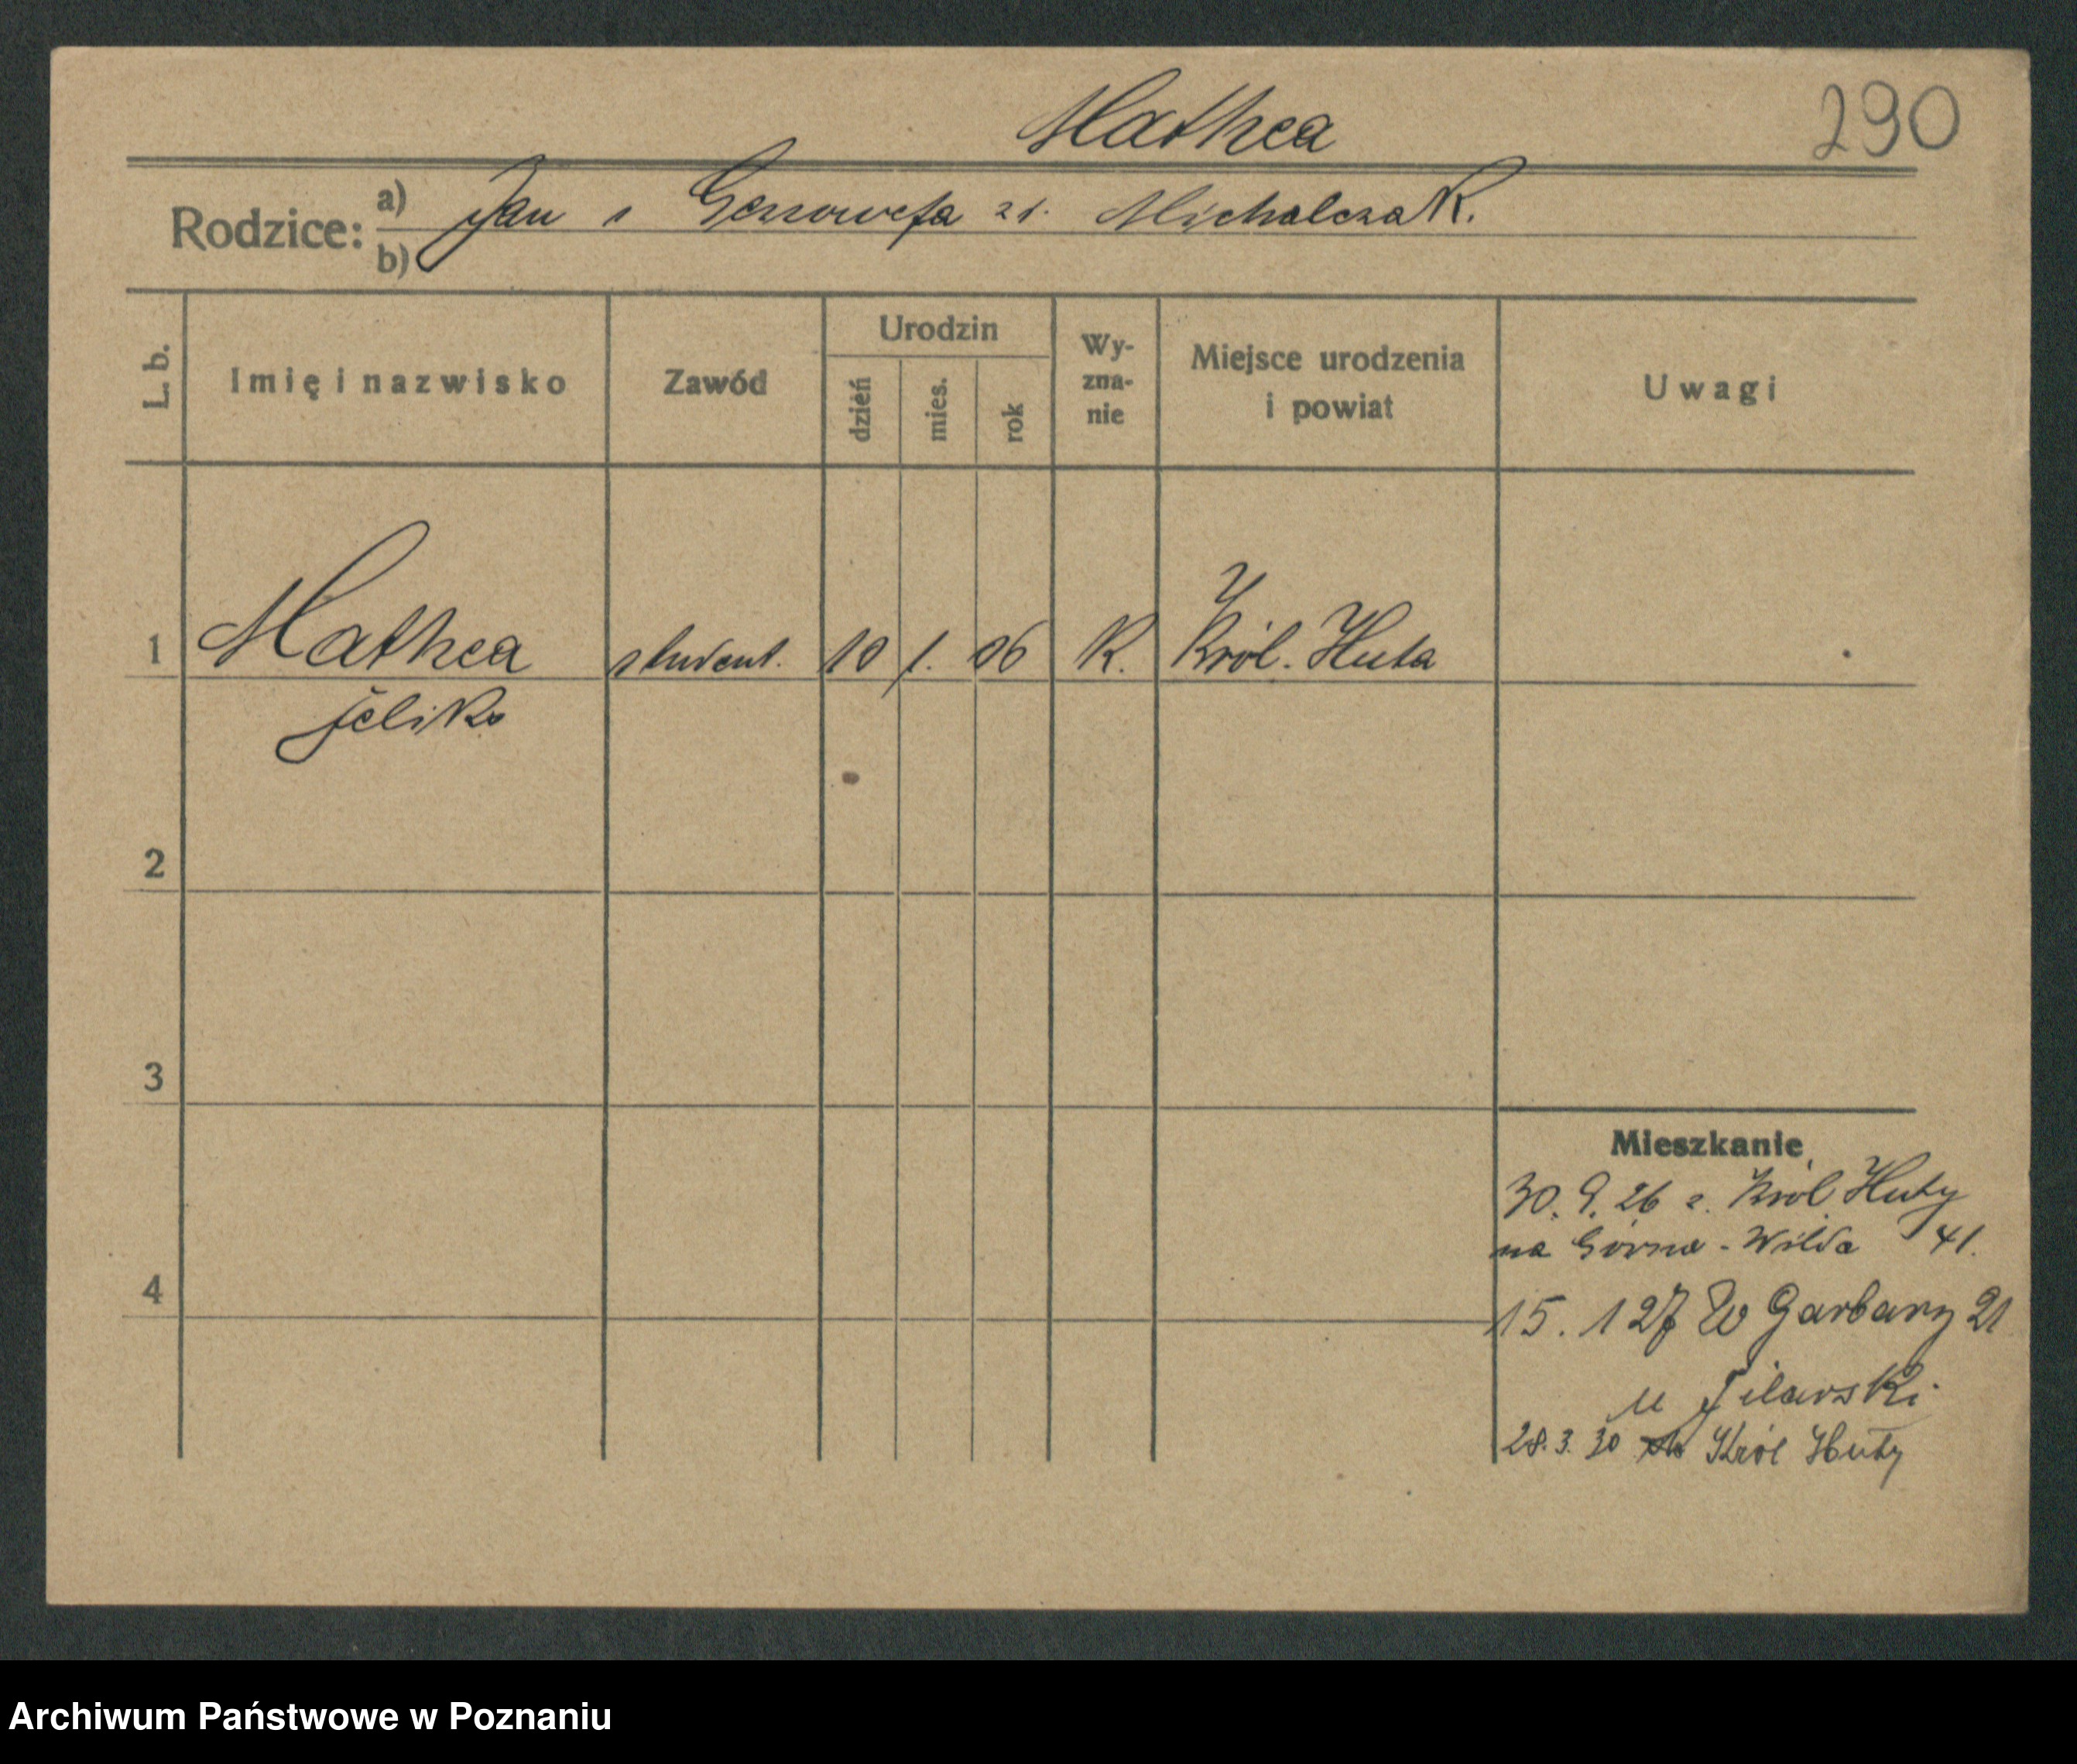 Mathea
290
Rodzice: a) Jan i Genowefa zd. Michalczak.
b)
L. b.
Imię i nazwisko
Zawód
Urodzin
dzień
mies.
rok
Wy-
zna-
nie
Miejsce urodzenia
i powiat
Uwagi
1 Mathea student. 10 1. 06 K. Król. Huta
Feliks
2
3
4
Mieszkanie
30. 9. 26 z. Król. Huty
na Górna - Wilda 41.
15. 1 27 W Garbary 21
u
28. 3. 30 Król Huty
Archiwum Państwowe w Poznaniu